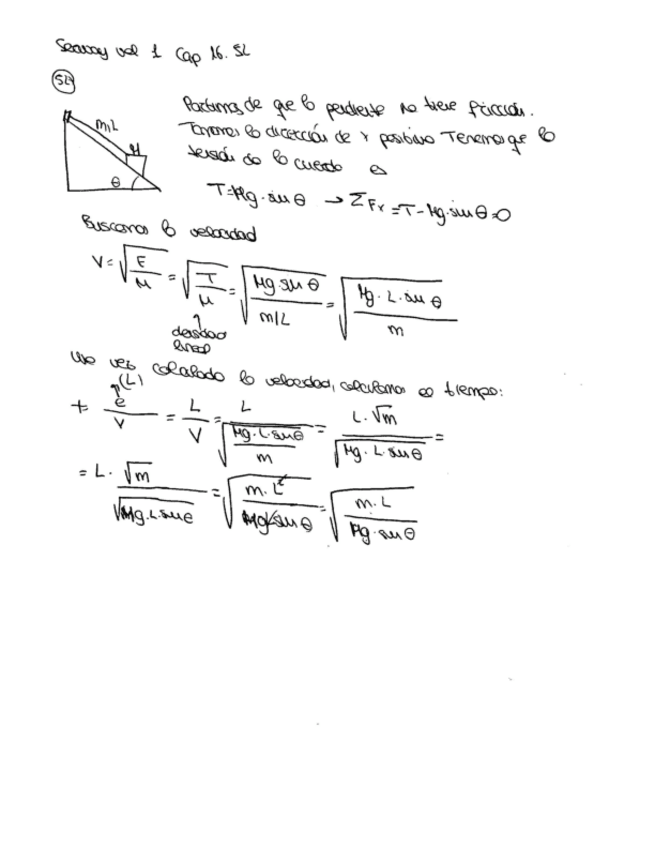 Serway vol 1 Cap 16. 52
52
m,L
M
θ
Partimos de que la pendiente no tiene fricción.
Tomamos la dirección de x positiva Tenemos que la
tensión de la cuerda es
T=Mg·sin θ → ΣFx=T-Mg·sin θ=0
Buscamos la velocidad
V=√(F/μ) = √(T/μ) = √(Mg sin θ/(m/L)) = √(Mg·L·sin θ/m)
↑
densidad
lineal
Una vez calculado la velocidad, calculamos el tiempo:
(L)
t= e/V = L/V = L/√(Mg·L·sin θ/m) = L·√m/√(Mg·L·sin θ) =
= L·√m/√(Mg·L·sin θ) = √(m·L²/(Mg L sin θ)) = √(m·L/(Mg·sin θ))